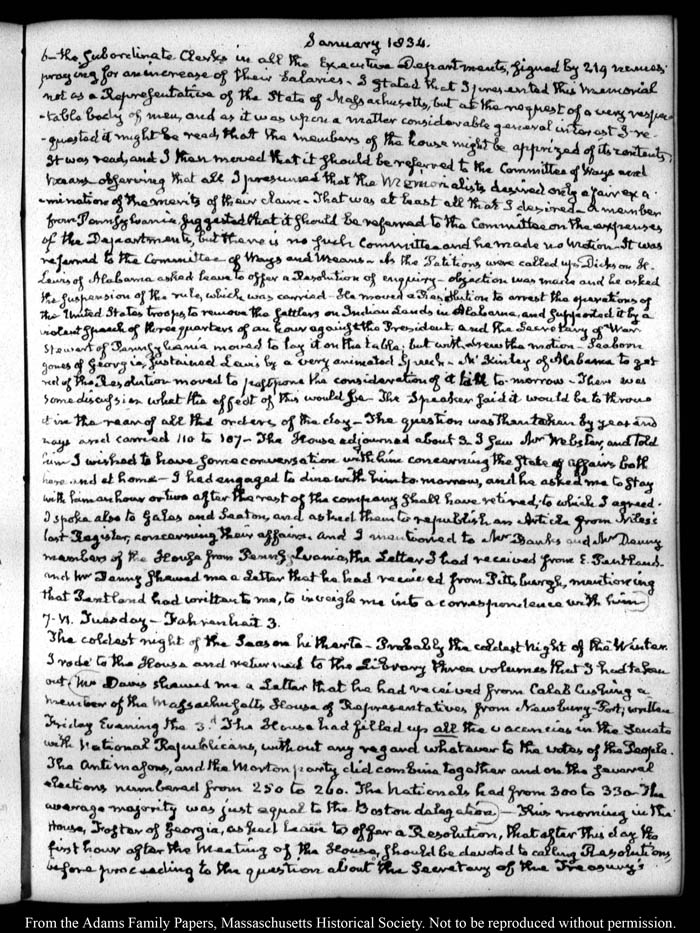 January 1834.
6 – the Subordinate Clerks in all the Executive Departments, signed by 219 names,
praying for an increase of their Salaries – I stated that I presented this Memorial
not as a Representative of the State of Massachusetts, but at the request of a very respec-
-table body of men, and as it was upon a matter considerable general interest I re-
-quested it might be read, that the members of the house might be apprized of its contents;
It was read, and I then moved that it should be referred to the Committee of Ways and
Means – observing that all I presumed that the Memorialists desired only a fair exa-
-mination of the merits of their claim – That was at least all that I desired – A member
from Pennsylvania suggested that it should be referred to the Committee on the expenses
of the Departments, but there is no such Committee and he made no motion – It was
referred to the Committee of Ways and Means – As the Petitions were called up Dickson H.
Lewis of Alabama asked leave to offer a Resolution of enquiry – objection was made and he asked
the suspension of the rule, which was carried – He moved a Resolution to arrest the operations of
the United States troops to remove the settlers on Indian Lands in Alabama, and supported it by a
violent speech of three quarters of an hour against the President, and the Secretary of War.
Stewart of Pennsylvania moved to lay it on the table; but withdrew the motion – Seaborn
Jones of Georgia, sustained Lewis by a very animated Speech – Mc Kinley of Alabama to get
rid of the Resolution moved to postpone the consideration of it till to-morrow – There was
some discussion what the effect of this would be – The Speaker said it would be to throw
it in the rear of all the orders of the day – The question was then taken by yeas and
nays and carried 110 to 107 – The House adjourned about 3. I saw Mr Webster, and told
him I wished to have some conversation with him concerning the State of affairs both
here and at home – I had engaged to dine with him to-morrow, and he asked me to stay
with him an hour or two after the rest of the company shall have retired; to which I agreed.
I spoke also to Gales and Seaton, and asked them to republish an Article from Niles's
last Register, concerning their affairs. And I mentioned to Mr Banks and Mr Denny
members of the House from Pennsylvania, the Letter I had received from E. Pentland
and Mr Denny shewed me a Letter that he had received from Pittsburgh, mentioning
that Pentland had written to me, to inveigle me into a correspondence with him
7. VI. Tuesday – Fahrenheit 3.
The coldest night of the Season hitherto – Probably the coldest night of the Winter.
I rode to the House and returned to the Library three volumes that I had taken
out. Mr Davis shewed me a Letter that he had received from Caleb Cushing a
member of the Massachusetts House of Representatives from Newbury-Port, written
Friday Evening the 3.d The House had filled up all the vacancies in the Senate
with National Republicans, without any regard whatever to the votes of the People.
The Antimasons, and the Morton party did combine together and on the several
elections numbered from 250 to 260. The Nationals had from 300 to 330 – The
average majority was just equal to the Boston delegation – This morning in the
House, Foster of Georgia, asked leave to offer a Resolution, that after this day the
first hour after the Meeting of the House, should be devoted to calling Resolutions,
before proceeding to the question about the Secretary of the Treasury's
From the Adams Family Papers, Massachusetts Historical Society. Not to be reproduced without permission.